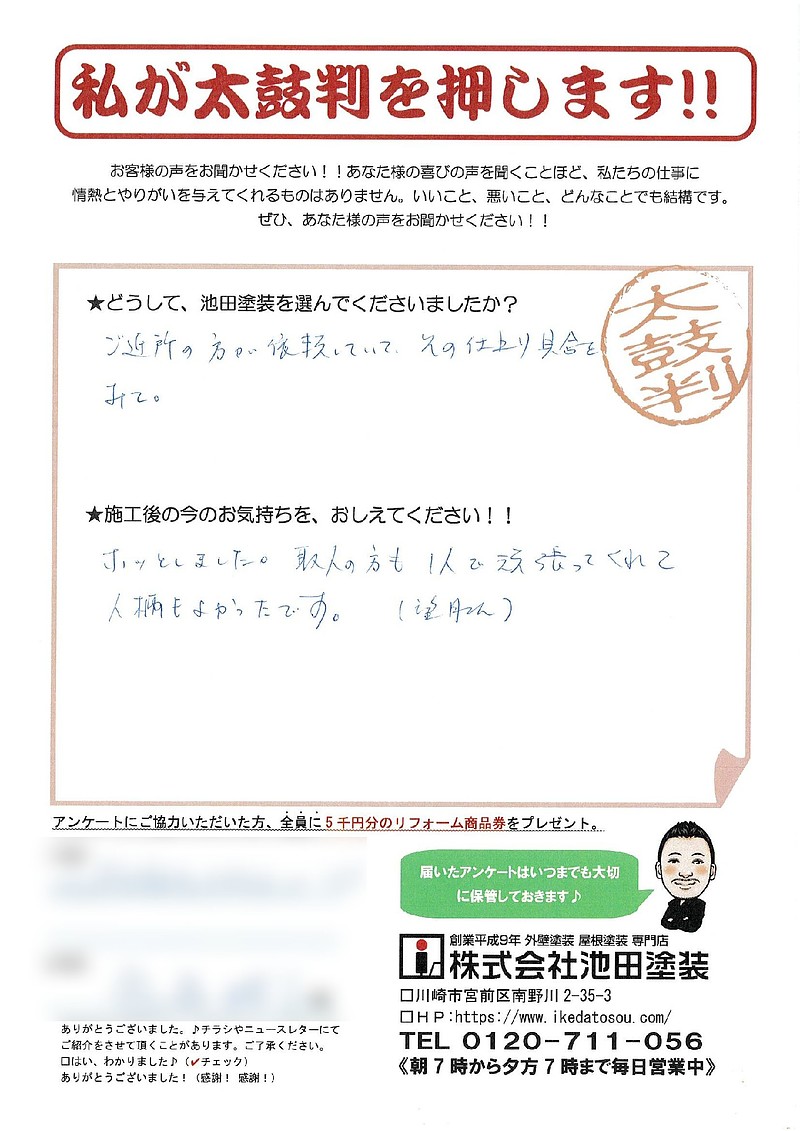 私が太鼓判を押します!!
お客様の声をお聞かせください！！あなた様の喜びの声を聞くことほど、私たちの仕事に
情熱とやりがいを与えてくれるものはありません。いいこと、悪いこと、どんなことでも結構です。
ぜひ、あなた様の声をお聞かせください！！
★どうして、池田塗装を選んでくださいましたか？
太鼓判
ご近所の方が依頼していて、その仕上り具合を
みて。
★施工後の今のお気持ちを、おしえてください！！
ホッとしました。職人の方も1人で頑張ってくれて
人柄もよかったです。（望月さん）
アンケートにご協力いただいた方、全員に5千円分のリフォーム商品券をプレゼント。
届いたアンケートはいつまでも大切
に保管しておきます♪
創業平成9年 外壁塗装 屋根塗装 専門店
株式会社池田塗装
口川崎市宮前区南野川2-35-3
口HP:https://www.ikedatosou.com/
TEL 0120-711-056
《朝7時から夕方7時まで毎日営業中》
ありがとうございました。♪チラシやニュースレターにて
ご紹介をさせて頂くことがあります。ご了承ください。
口はい、わかりました♪（✔チェック）
ありがとうございました！（感謝！感謝！）